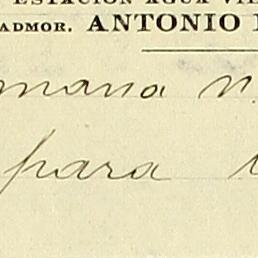 ESTACIÓN AGUA VI
ADMOR. ANTONIO
mana n.
para